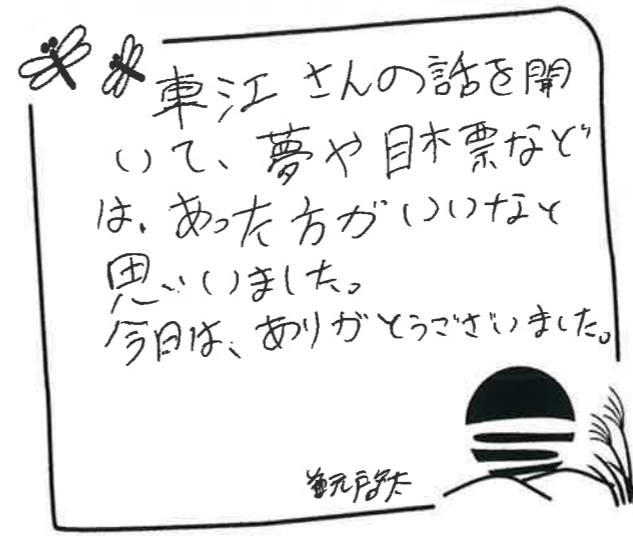 東江さんの話を開
いて、夢や目標など
は、あった方がいいなと
思いました。
今日は、ありがとうございました。